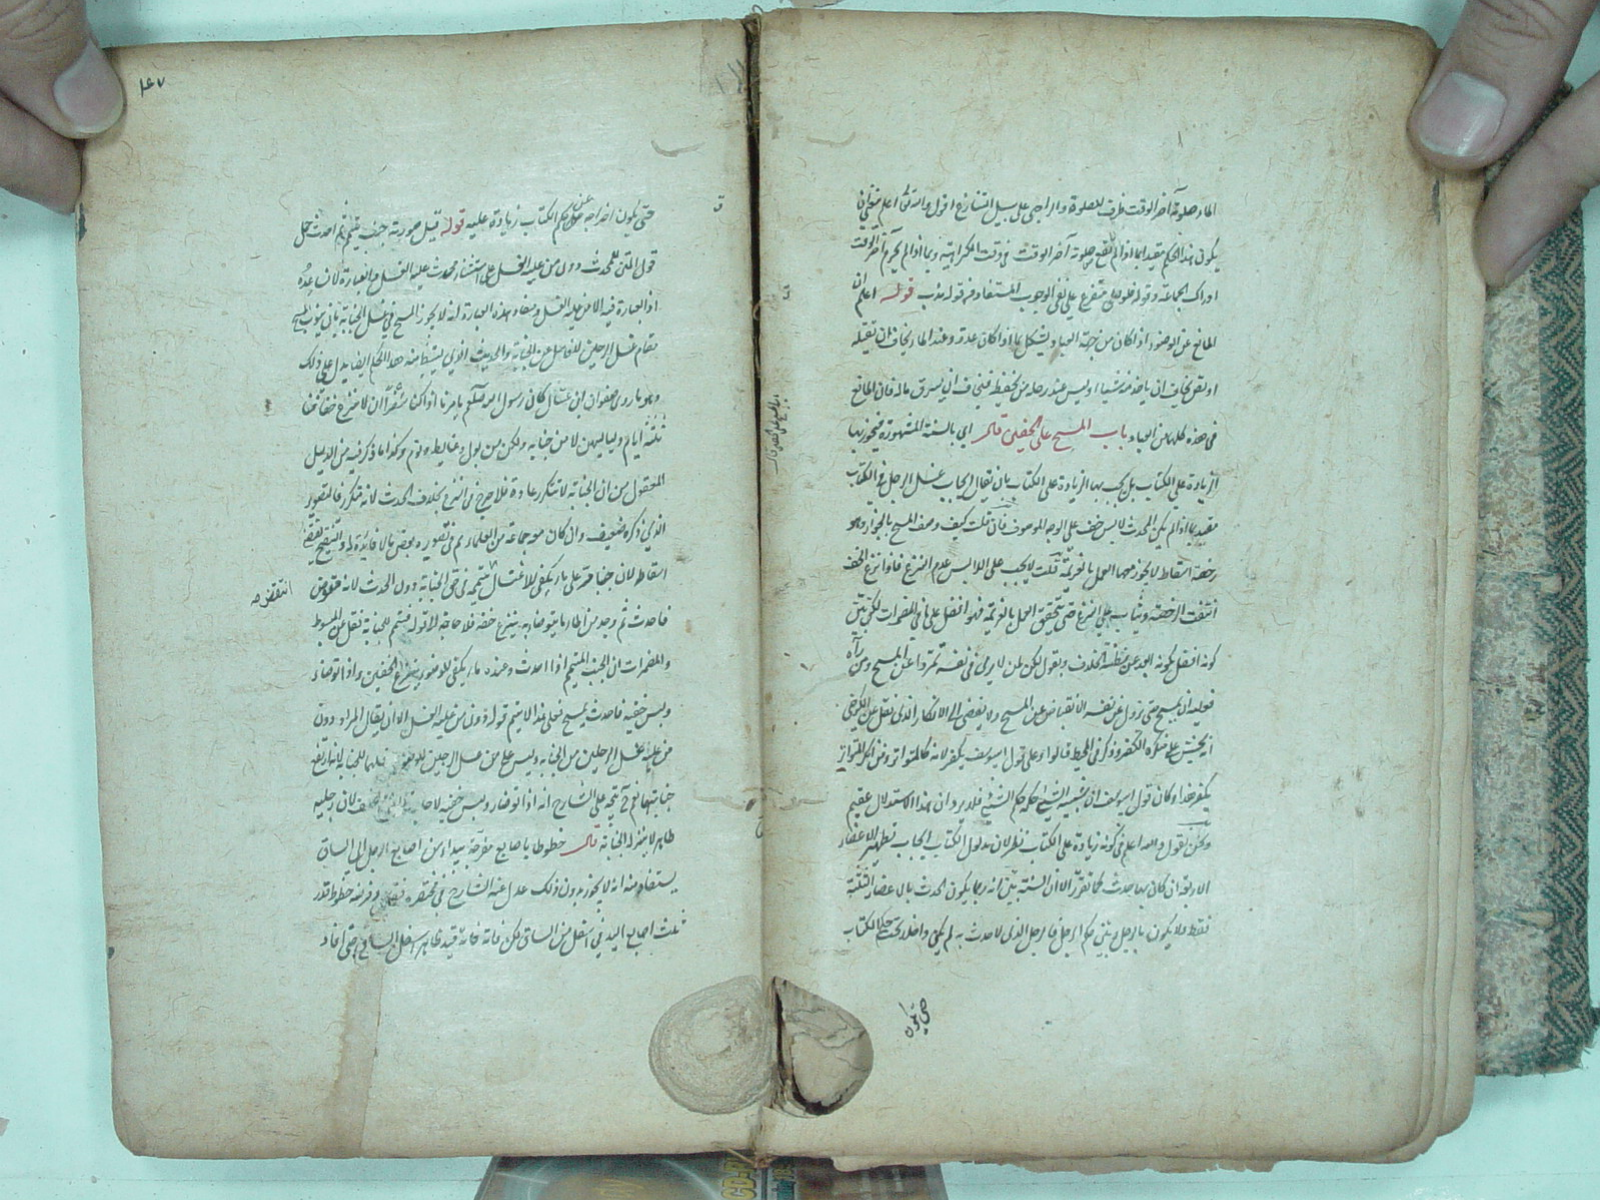 الماء صلوته آخر الوقت ظرف للصلوة والراجي على سبيل التنازع اقول والله تعالى اعلم ينبغي ان
يكون هذا الحكم مقيدا بما اذا لم يقع صلوته آخر الوقت في وقت الكراهية وبما اذا لم يحرم آخر الوقت
ادراك الجماعة وقوله فلو صلى متفرع على نفي الوجوب المستفاد من قوله ندب قوله اعلم ان
المانع عن الوضوء اذا كان من جهة العباد ويشكل بما اذا كان عدو وعند الماء يخاف ان يقتله
او لص يخاف ان ياخذ منه شيئا وليس عنده رحله من يحفظه فيخاف ان يسرق ماله فان المانع
في هذه كلها من العباد باب المسح على الخفين قال اي بالسنة المشهورة فيجوز بها
الزيادة على الكتاب بل يجب بها الزيادة على الكتاب بان يقال ايجاب غسل الرجل في الكتاب
مقيد بما اذا لم يكن المحدث لابس خف على الوجه الموصوف فان قلت كيف وصف المسح بالجواز وهو
رخصة اسقاط لا يجوز معها العمل بالعزيمة قلت لا يجب على اللابس عدم النزع فاذا نزع الخف
انتفت الرخصة ويثاب على النزع حتى يتحقق العمل بالعزيمة فهو افضل على ما في المضمرات لكن تبين
كونه افضل بكونه ابعد عن مظنة الخلاف ونقول لكن لمن لا يرى في نفسه تمردا عن المسح ومن رآه
فعليه ان يمسح حتى يزول عن نفسه الانقباض عن المسح ولا يفضي الى الانكار الذي نقل عن الكرخي
انه يخشى على منكره الكفر وذكر في المحيط قالوا وعلى قول ابي يوسف يكفر لانه كالمتواتر ومن انكر المتواتر
يكفر هذا وكان قول ابي يوسف ان شبيه الشيء حكمه حكم الشيء فلا يرد ان هذا الاستدلال عقيم
ونحن نقول والله اعلم في كونه زيادة على الكتاب نظر لان مدلول الكتاب ايجاب تطهير الاعضاء
الاربعة ان كان بها حدث كما تقرر الا ان السنة تبين انه ربما يكون الحدث بالاعضاء الثلثة
فقط ولا يكون بالرجل وتبين حكم الرجل فالرجل الذي لا حدث به لم يكن داخلا تحت حكم الكتاب
حتى يكون
حتى يكون اخراجه عن حكم الكتاب زيادة عليه قوله قيل صورته جنب تيمم ثم احدث حمل
قول المتن للمحدث دون من عليه الغسل على استثناء محدث عليه الغسل والعبارة لا تساعده
اذ العبارة فيه الا من عليه الغسل ومفاد هذه العبارة انه لا يجوز المسح في غسل الجنابة بان ينوب المسح
مقام غسل الرجلين للغاسل عن الجنابة والحديث الذي يستنبط منه هذا الحكم ايضا يدل على ذلك
وهو ما روى صفوان ابن عسال كان رسول الله صلعم يامرنا اذا كنا سفرا ان لا ننزع خفافنا
ثلثة ايام ولياليهن لا من جنابة ولكن من بول وغايط ونوم وكذا ما ذكر فيه من الدليل
المعقول من ان الجنابة لا تتكرر عادة فلا حرج في النزع بخلاف الحدث لانه متكرر فالتصوير
الذي ذكره ضعيف وان كان معه جماعة من العلماء ثم في تصويره بعض ما لا فايدة له والتنقيح يقتضي
اسقاطه لان جنبا قدر على ماء يكفي للاغتسال تيممه في حق الجنابة دون الحدث لانه
انتقض صح
فاحدث ثم وجد من الماء ما يتوضأ به ينزع خفه فلا حاجة الى قوله فتيمم للجنابة نقل عن المبسوط
والمضمرات ان الجنب المتيمم اذا احدث وعنده ماء يكفي للوضوء ينزع الخفين واذا توضاء
ولبس خفيه فاحدث يمسح فعلى هذا لا يتم قوله دون من عليه الغسل الا ان يقال المراد دون
من عليه غسل الرجلين من الجنابة وليس مع من غسل الرجلين للوضوء
جنابتهما نعم يتجه على الشارح انه اذا توضاء ولبس خفيه لا حاجة لان رجليه
طاهرة لا ينزل الجنابة قال خطوطا باصابع مفرجة يبداء من اصابع الرجل الى الساق
يستفاد منه انه لا يجوز بدون ذلك عدل عنه الشارح في مختصره وفرضه خطوط قدر
ثلث اصابع اليد في اسفل من الساق لكن فاته فائدة قيد ظاهر اسفل الساق حتى افاد